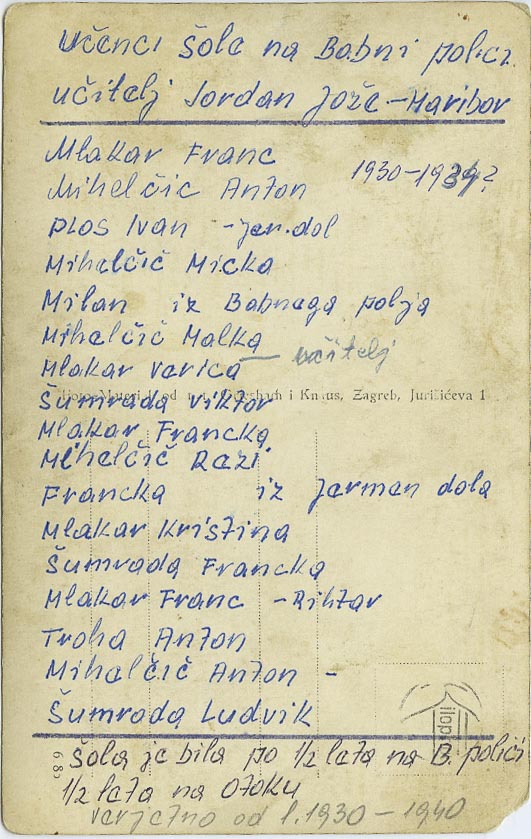 Učenci šole na Babni polici.
učitelj Jordan Jože - Maribor
Mlakar Franc
1930-1934?
Mihelčič Anton
Plos Ivan - Jer. dol
Mihelčič Micka
Milan iz Babnega polja
Mihelčič Malka
Mlakar Verica — učitelj
Šumrada Viktor
i Knaus, Zagreb, Jurišićeva 1
Mlakar Francka
Mihelčič Rezi
Francka iz Jermen dola
Mlakar Kristina
Šumrada Francka
Mlakar Franc - Rihtar
Troha Anton
Mihelčič Anton -
Šumrada Ludvik
Šola je bila po 1/2 leta na B. polici
1/2 leta na Otoku
verjetno od l. 1930 - 1940